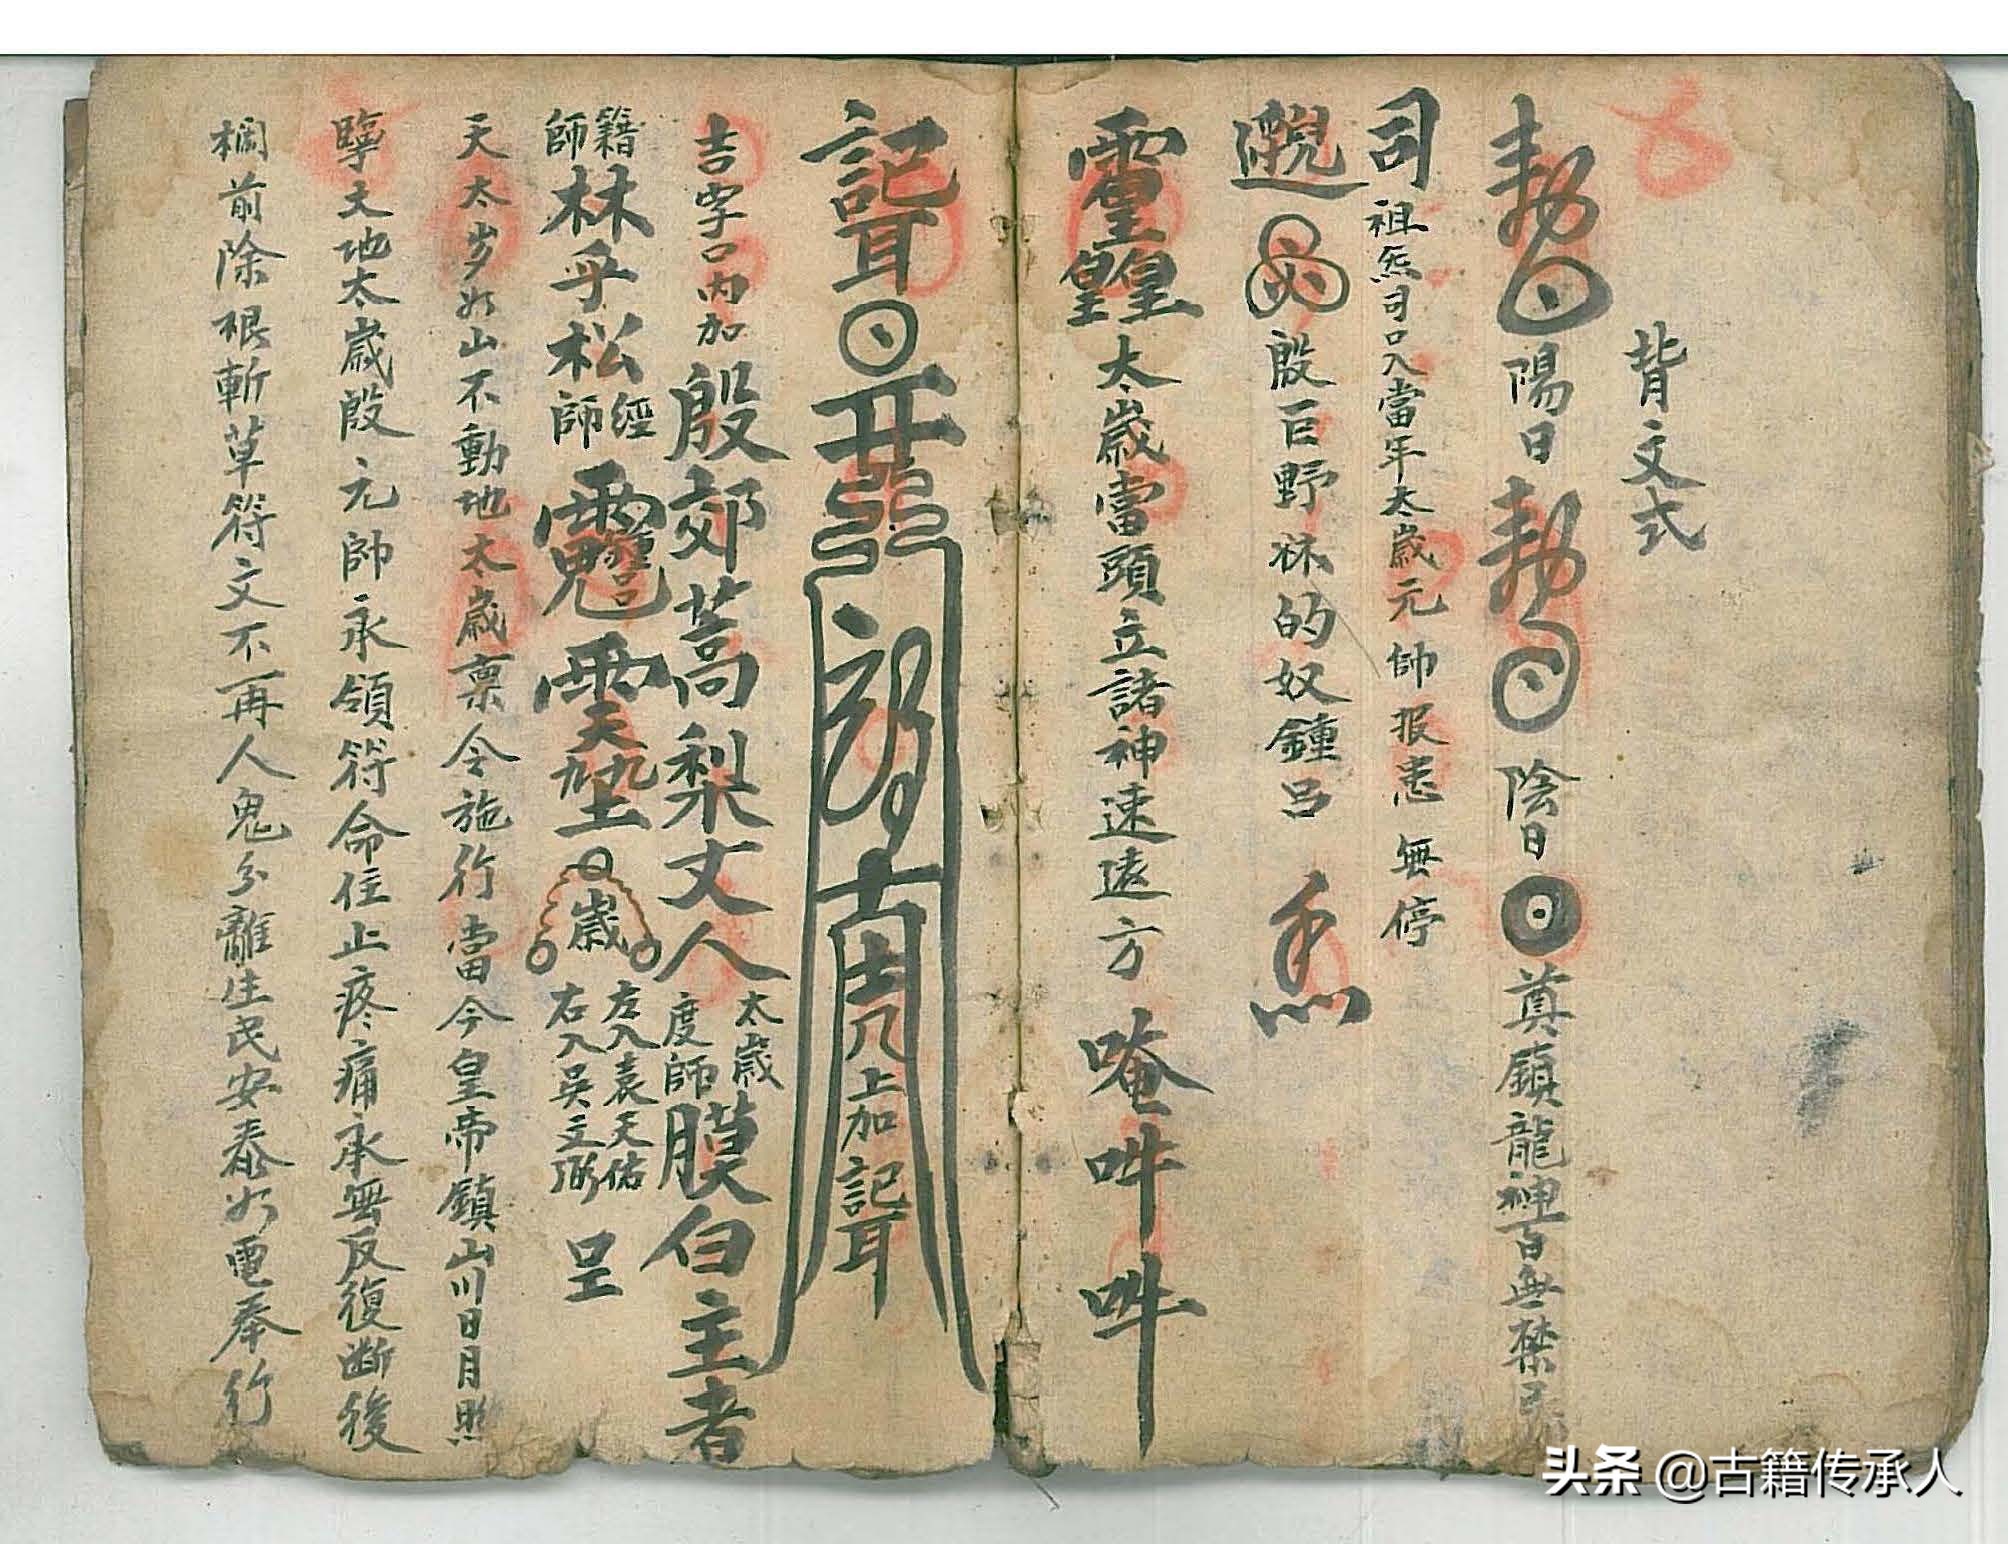 背文式
勅 陽日 勅 陰日 真鎮龍神百無禁忌
司 祖炁司口入當年太歲元帥报患無停
殷巨野林的奴鍾吕
太歲當頭立諸神速遠方 唵吽吽
上加
吉字口内加殷郊蒿梨丈人 太歲 度師 膜白主者
籍師 林乎松 經師 歲 左入袁天佑 右入吴文彤 呈
天太岁如山不動地太歲禀令施行當今皇帝鎮山川日月照
天地太歲殷元帥承領符命住止疼痛承無反復断後
欄前除根斬草符文不再人鬼分離生民安泰如電奉行
头条 @古籍传承人